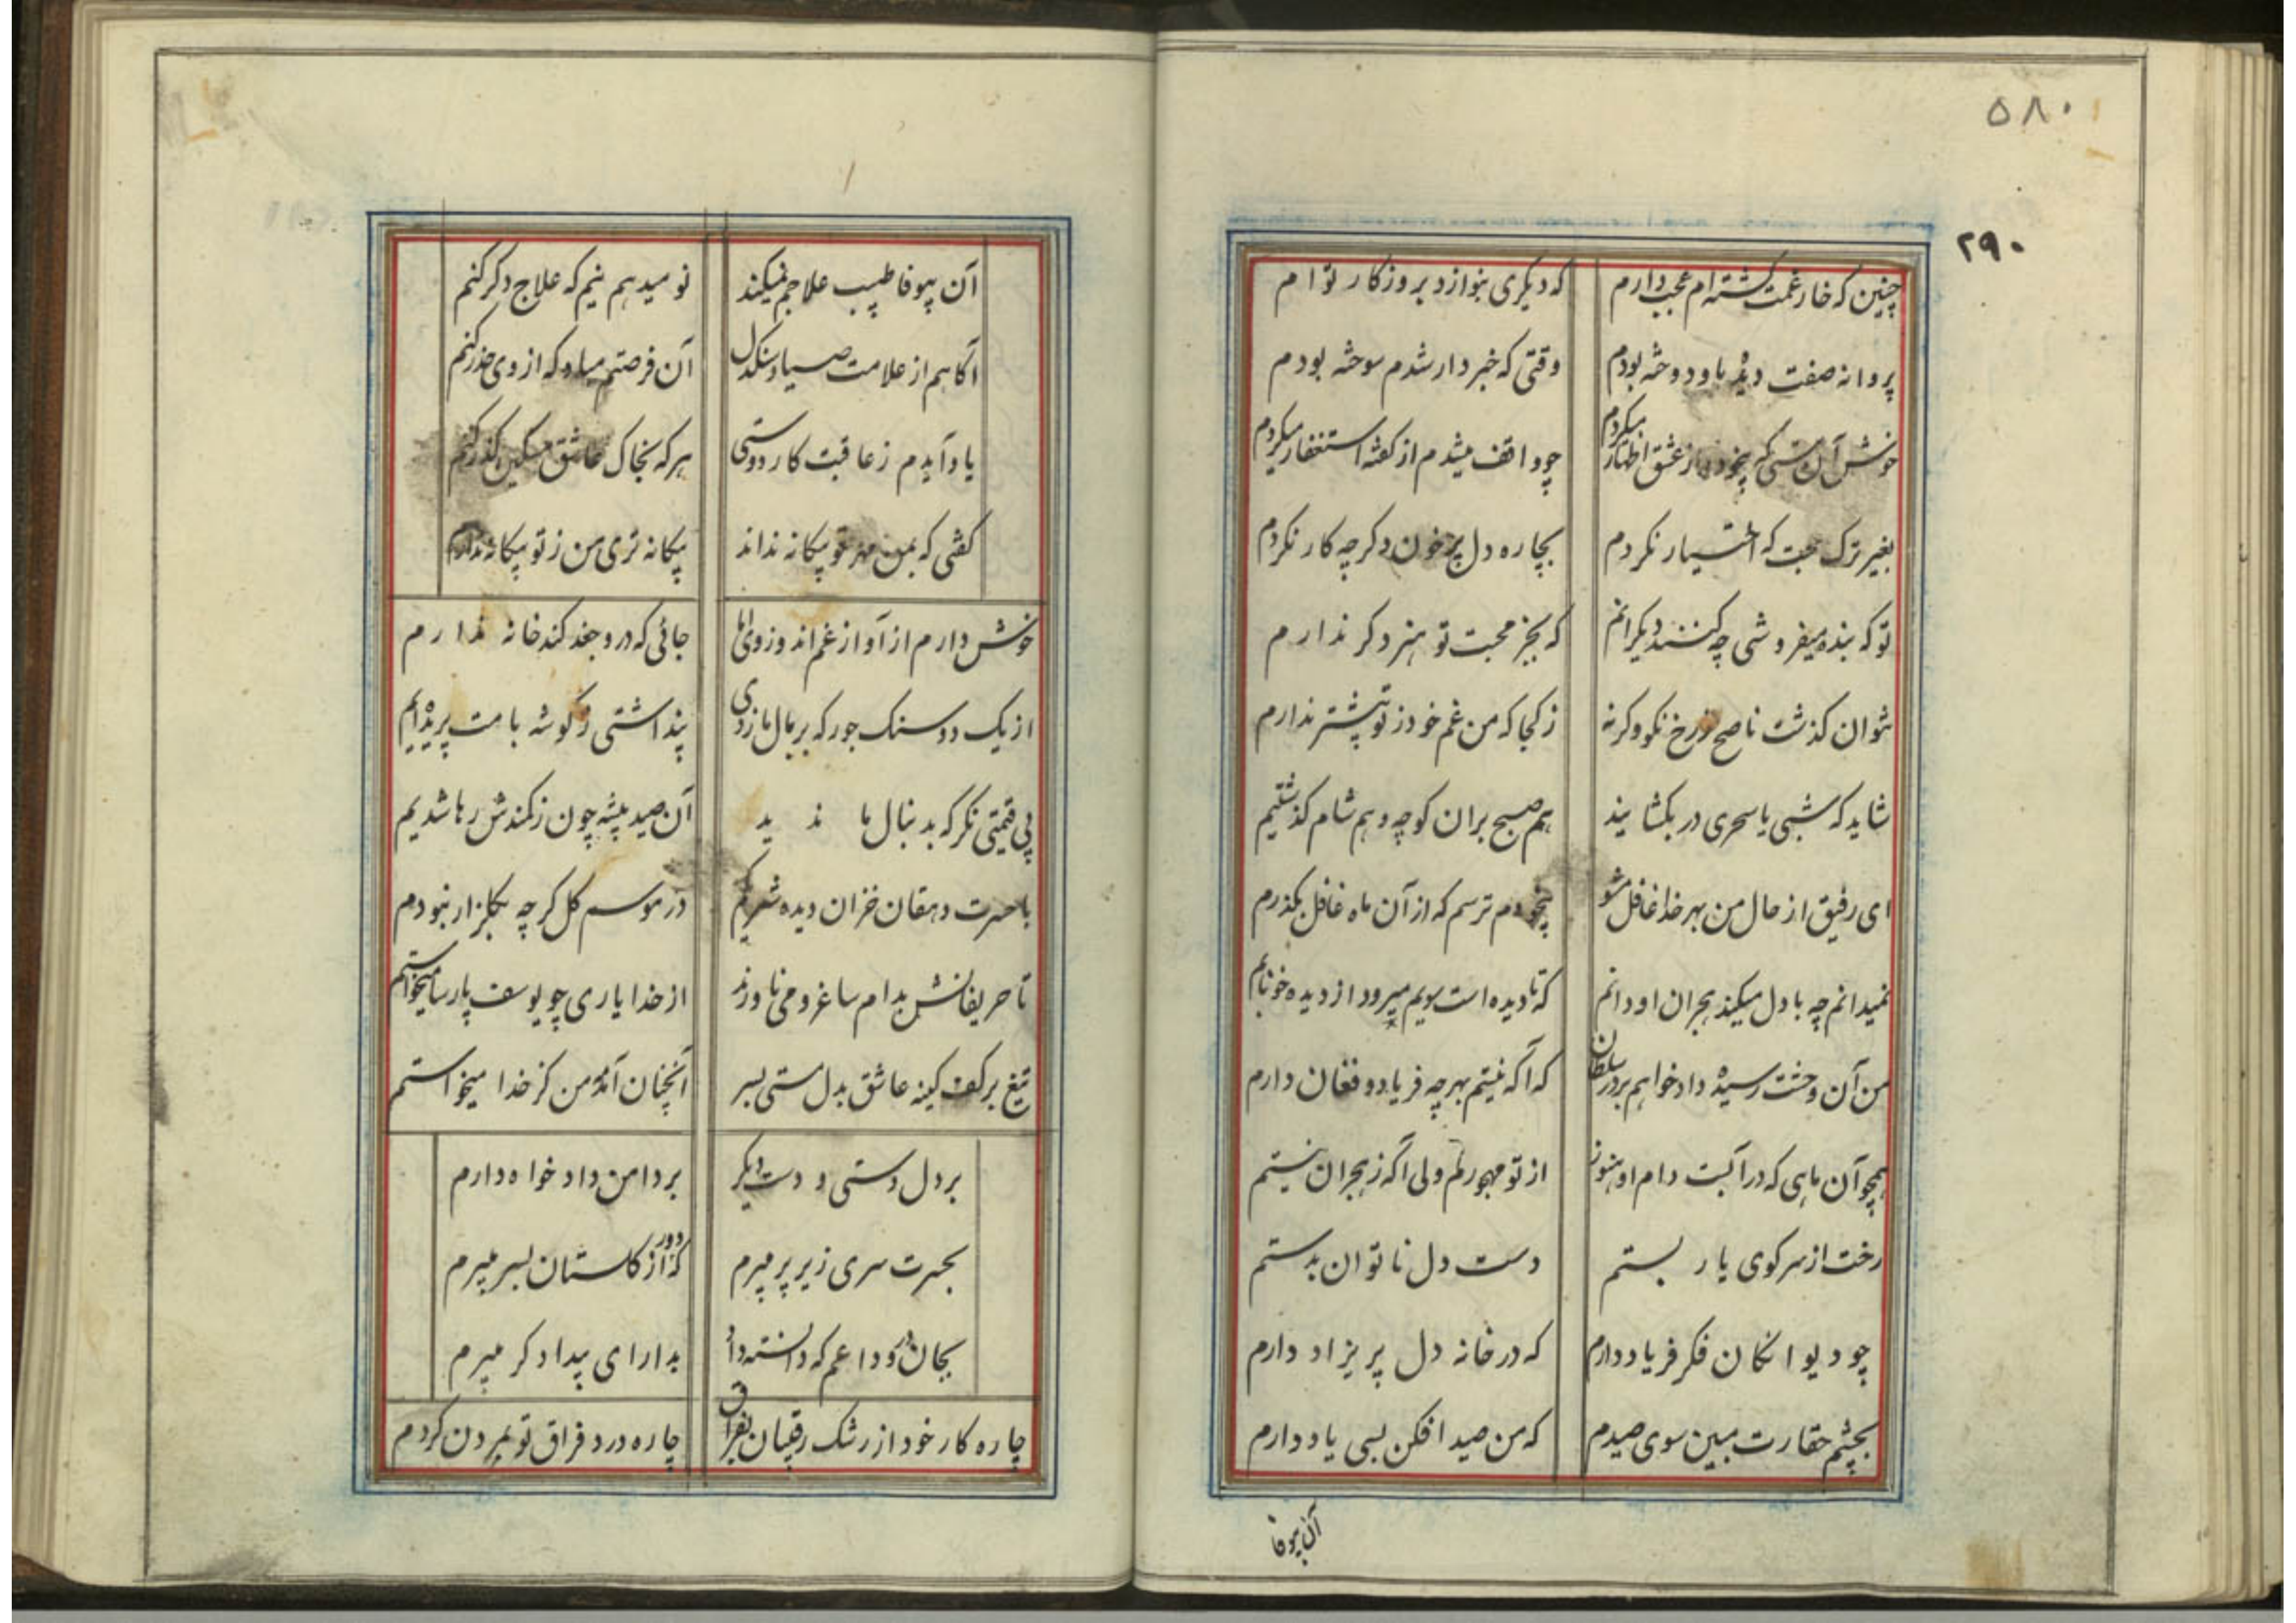 ۵۸۰
۲۹۰
چنین که خار غمت کشته‌ام عجب دارم که دیکری بنوازد بروزکار توام
پروانه صفت دیده باو دوخته بودم وقتی که خبردار شدم سوخته بودم
خوش آن مستی که بیخود از عشق اظهار میکردم چو واقف میشدم از کفته استغفار میکردم
بغیر ترک محبت که اختیار نکردم بچاره دل پرخون دکر چه کار نکردم
تو که بنده میفروشی چه کنند دیکرانم که بجز محبت تو هنر دکر ندارم
نتوان کذشت ناصح ز رخ نکو وکرنه ز کجا که من غم خود ز تو بیشتر ندارم
شاید که شبی یا سحری در بکشایند هم صبح بران کوچه و هم شام کذشتیم
ای رفیق از حال من بهر خدا غافل مشو بیخودم ترسم که از آن ماه غافل بکذرم
نمیدانم چه با دل میکند هجران او دانم که تا دیده است سویم میرود از دیده خونابم
من آن وحشت رسیده دادخواهم بر در سلطان که آکه نیستم بهر چه فریاد و فغان دارم
همچو آن ماهی که در آبست دام او هنوز از تو مهجورم ولی آکه ز هجران نیستم
رخت از سر کوی یار بستم دست دل ناتوان بدستم
چو دیوانکان فکر فریاد دارم که در خانه دل پریزاد دارم
بچشم حقارت مبین سوی صیدم که من صیدافکن بسی یاد دارم
آن بیوفا
آن بیوفا طبیب علاجم نمیکند نومید هم نیم که علاج دکر کنم
آکاهم از علامت صیاد سنکدل آن فرصتم مباد که از وی حذر کنم
یاد آیدم ز عاقبت کار دوستی هرکه بخاک عاشق مسکین کذر کنم
کفتی که بمن مهر تو بیکانه نداند بیکانه تری من ز تو بیکانه ندارم
خوش دارم از آواز غم اندوز وی اما جائی که درو جغد کند خانه ندارم
از یک دو سنک جور که بر بال ما زدی پنداشتی ز کوشه بامت پریده‌ایم
بی قیمتی نکر که بدنبال ما ندید آن صید پیشه چون ز کمندش رها شدیم
با حسرت دهقان خزان دیده شریکم در موسم کل کرچه بکلزار نبودم
تا حریفانش بدام ساغر و می ناورند از خدا یاری چو یوسف پارسا میخواستم
تیغ بر کف کینه عاشق بدل مستی بسر آنچنان آمد که من کز خدا میخواستم
بر دل دستی و دست دیکر بر دامن دادخواه دارم
بحسرت سری زیر پر میبرم که دور از کلستان بسر میبرم
بجان در وداعم که دانسته داد بدارای بیدادکر میبرم
چاره کار خود از رشک رقیبان بفراق چاره درد فراق تو بمردن کردم